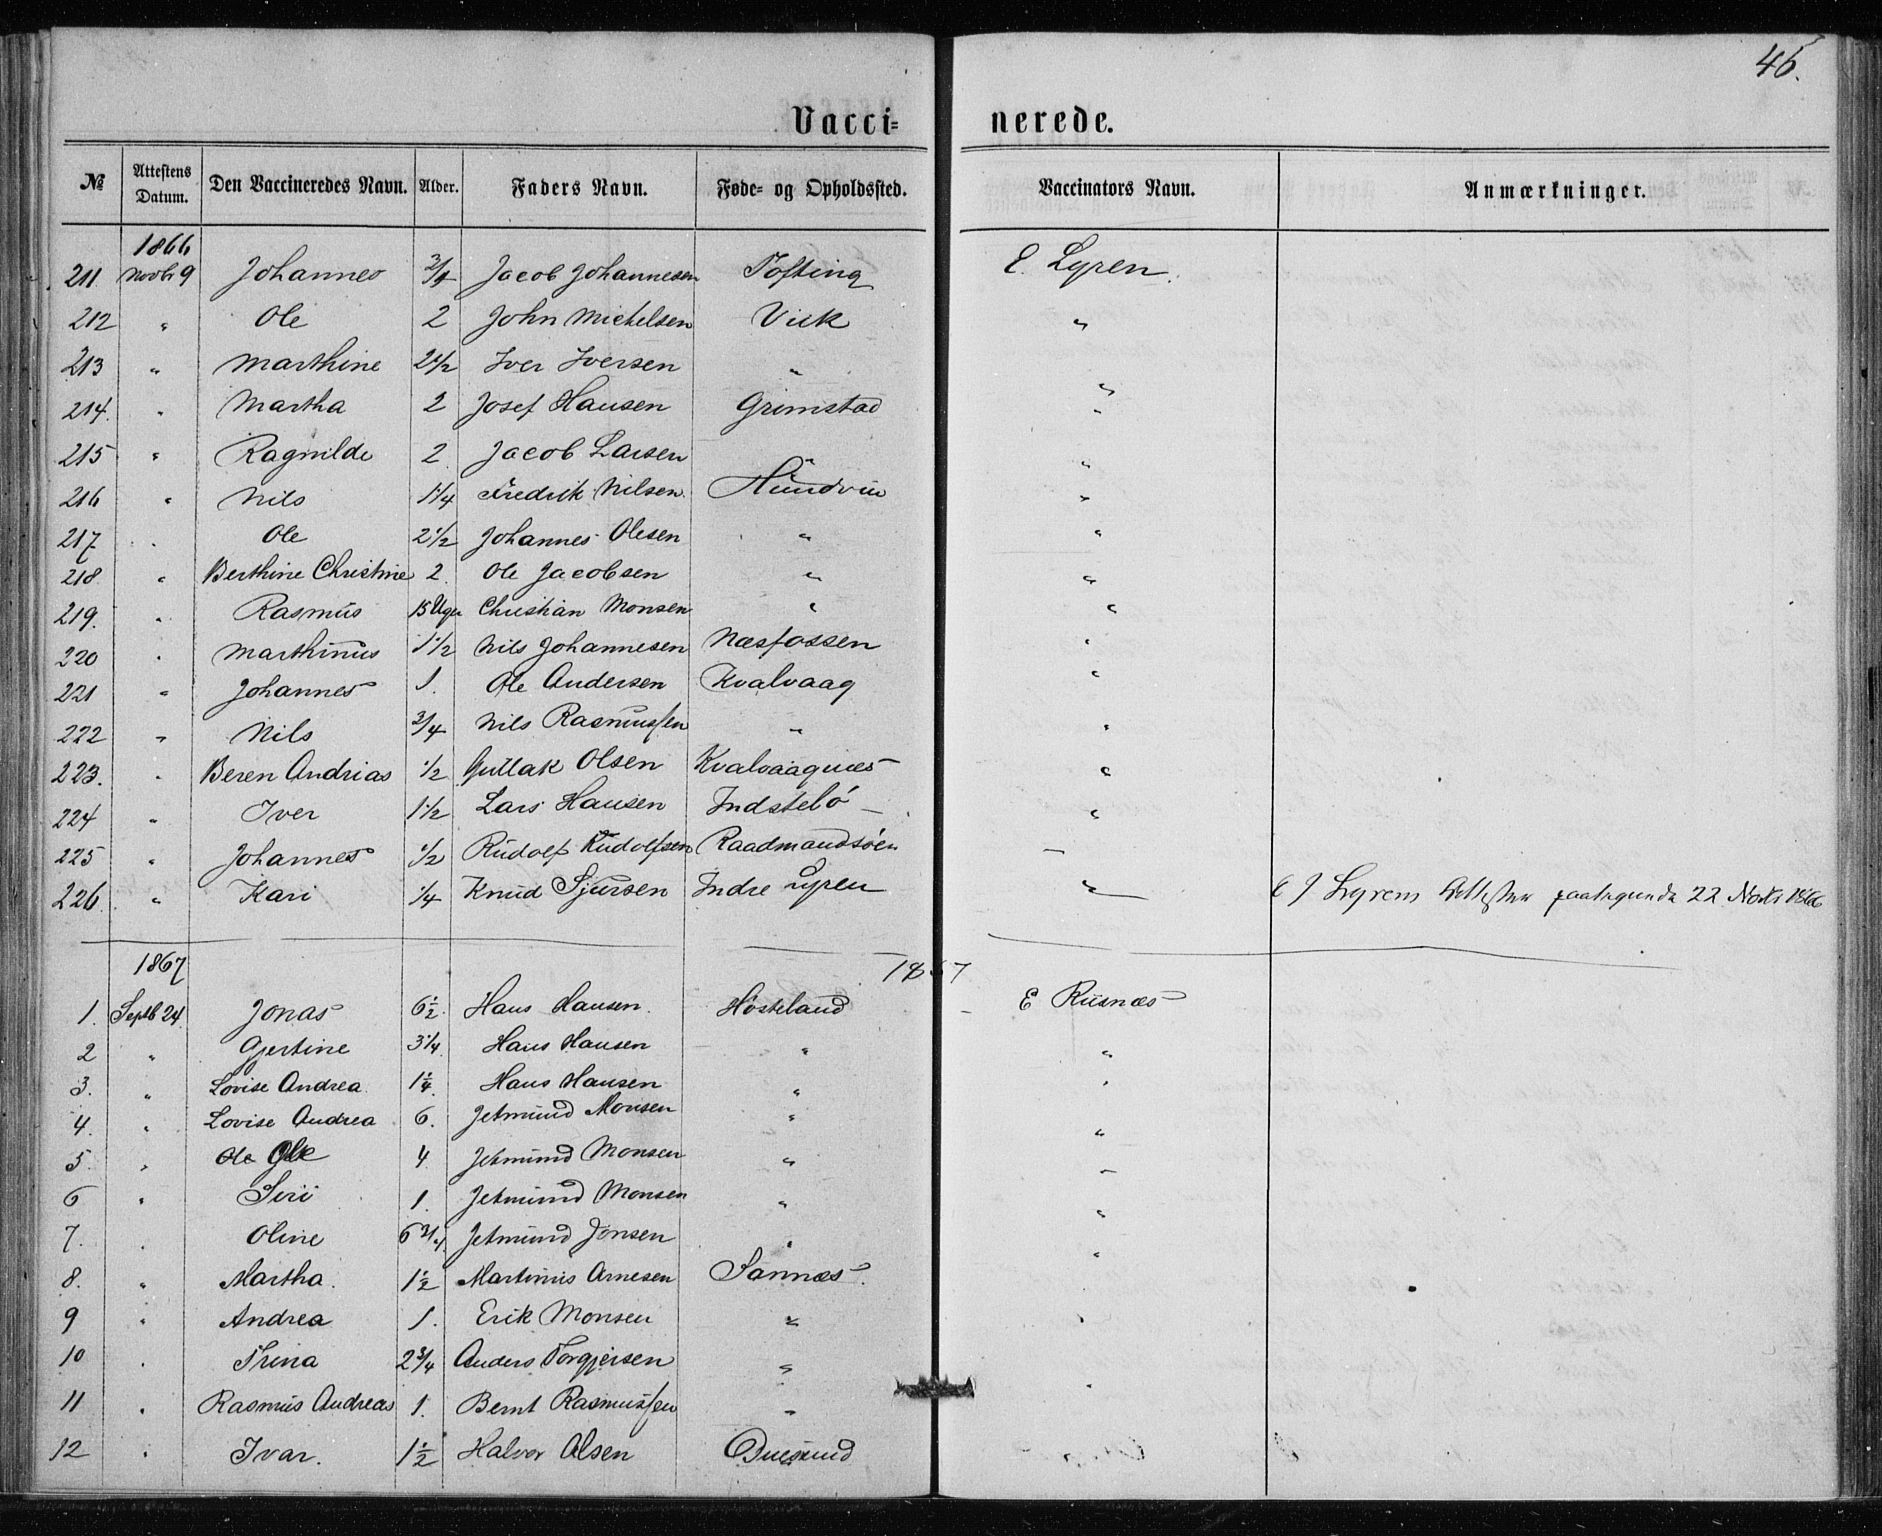 46.
Vacci= nerede.
№ Attestens Datum. Den Vaccineredes Navn. Alder. Faders Navn. Føde= og Opholdssted. Vaccinators Navn. Anmærkninger.
1866
211. Novbr 9 Johannes 3/4 Jacob Johannesen Tofting E. Lyren.
212 " Ole 2 John Michelsen Viik "
213 " Marthine 2 1/2 Iver Iversen " "
214. " Martha 2 Josef Hansen Grimstad "
215 " Ragnilde 2 Jacob Larsen " "
216 " Nils 1 1/4 Fredrik Nilsen Hundvin "
217 " Ole 2 1/2 Johannes Olesen " "
218. " Berthine Christine 2. Ole Jacobsen " "
219. " Rasmus 15 Uger Christian Monsen " "
220 " Marthinus 1 1/2 Nils Johannesen Næsfossen "
221 " Johannes 1. Ole Andersen Kvalvaag "
222 " Nils 3/4 Nils Rasmussen " "
223. " Beren Andrias 1/2 Gullak Olsen Kvalvaagnæs "
224 " Iver 1 1/2 Lars Hansen Indstebö "
225 " Johannes 1/2 Rudolf Rudolfsen Raadmandsöen "
226. " Kari 1/4 Knud Sjursen Indre Lyren " E J Lyrens Attester 22 Novbr 1866
1867 1867
1. Septb 24 Jonas 6 1/2 Hans Hansen. Hösteland E Riisnæs
2 " Gjertine 3 1/4 Hans Hansen " "
3. " Lovise Andrea 1 1/4. Hans Hansen " "
4. " Lovise Andrea 6. Jetmund Monsen " "
5. " Ole Ole 4 Jetmund Monsen " "
6 " Siri 1. Jetmund Monsen " "
7. " Oline 6 3/4. Jetmund Jonsen " "
8. " Martha. 1 1/2 Martinus Arnesen Sannæs. "
9 " Andrea 1. Erik Monsen " "
10 " Trina 2 3/4 Anders Torgjersen "
11 " Rasmus Andreas 1. Bernt Rasmussen " "
12 " Ivar. 1 1/2 Halvor Olsen Duesund